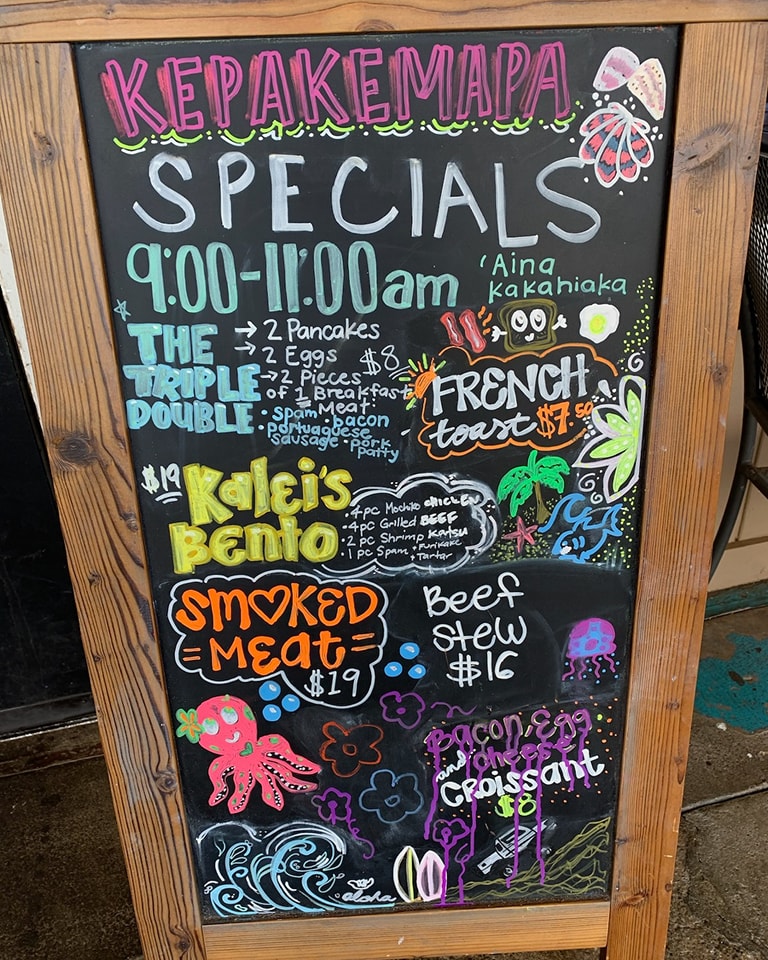 KEPAKEMAPA
SPECIALS
9:00-11:00am
'Aina
kakahiaka
THE
TRIPLE
DOUBLE
→ 2 Pancakes
→ 2 Eggs
$8
→ 2 Pieces
of 1 Breakfast
Meat:
• spam • bacon
• portuguese
sausage • pork
patty
FRENCH
toast $7.50
$19
Kalei's
Bento
• 4pc Mochiko CHICKEN
• 4pc Grilled BEEF
2 pc Shrimp KATSU
1 pc Spam + Furikake
+ Tartar
SMOKED
= MEAT =
$19
Beef
Stew
$16
Bacon, Egg
and cheese
CROISSANT
$8
aloha